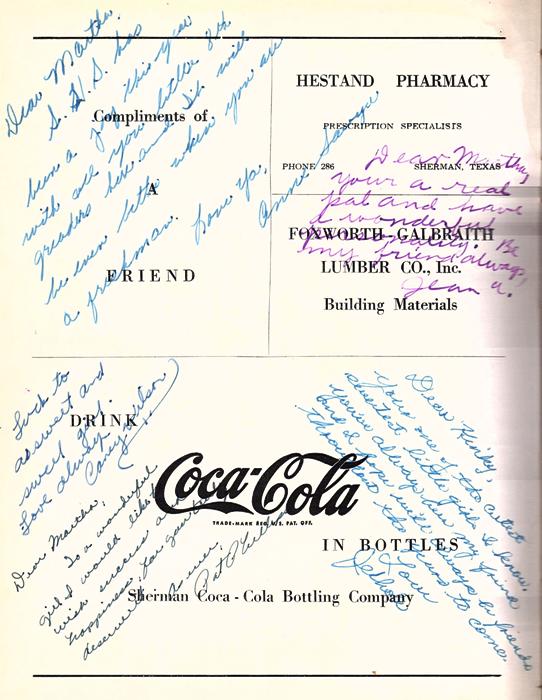 Dear Martha,
S. H. S. has
been a joy this year
with all you little 8th
graders here and it will
be even better when you are
a freshman.
Love Ya,
Anne
Compliments of
A
FRIEND
HESTAND PHARMACY
PRESCRIPTION SPECIALISTS
PHONE 286 SHERMAN, TEXAS
Dear Martha,
Your a real
pal and have
a wonderful
personality. Be
my friend always,
Jean A.
FOXWORTH-GALBRAITH
LUMBER CO., Inc.
Building Materials
Luck to
a sweet and
sweet gal.
Love always
Carey Wilson
DRINK
Coca-Cola
TRADE-MARK REG. U.S. PAT. OFF.
IN BOTTLES
Sherman Coca-Cola Bottling Company
Dear Martha,
To a wonderful
girl I would like to
wish success and
happiness, for you
deserve
Pat
Dear
Your one of the cutest
sweetest little girls I know.
You've always been my friend
and I hope we'll always be friends
years to come.
Love